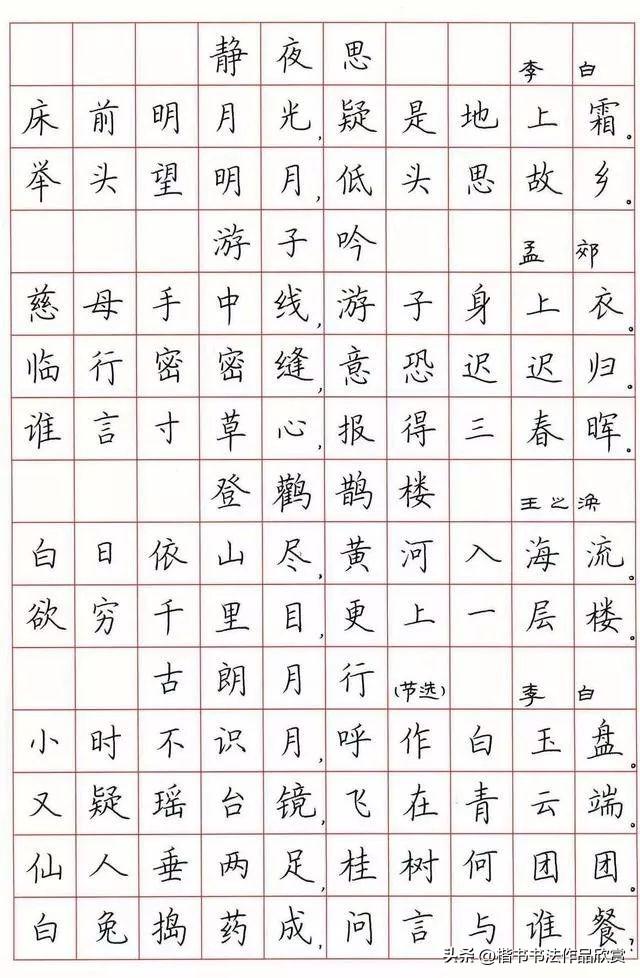 静夜思 李白
床前明月光,疑是地上霜。
举头望明月,低头思故乡。
游子吟 孟郊
慈母手中线,游子身上衣。
临行密密缝,意恐迟迟归。
谁言寸草心,报得三春晖。
登鹳鹊楼 王之涣
白日依山尽,黄河入海流。
欲穷千里目,更上一层楼。
古朗月行(节选) 李白
小时不识月,呼作白玉盘。
又疑瑶台镜,飞在青云端。
仙人垂两足,桂树何团团。
白兔捣药成,问言与谁餐?
头条@楷书书法作品欣赏